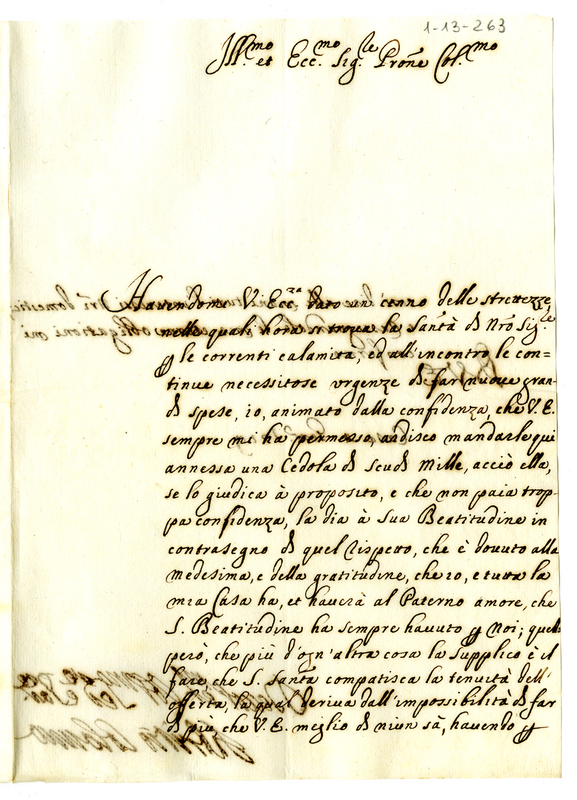 1-13-263
Ill.mo et Ecc.mo Sig.le Prone Col.mo
Havendomi V. Ecc.za dato un cenno delle strettezze,
nelle quali hora si trova la Santà di Nro Sig.le
p le correnti calamità, ed all'incontro le con-
tinue necessitose urgenze di far nuove gran-
di spese, io, animato dalla confidenza, che V. E.
sempre mi ha permesso, ardisco mandarle qui
annessa una Cedola di scudi Mille, acciò ella,
se lo giudica à proposito, e che non paia trop-
pa confidenza, la dia à Sua Beatitudine in
contrasegno di quel rispetto, che è dovuto alla
medesima, e della gratitudine, che io, e tutta la
mia Casa ha, et haverà al Paterno amore, che
S. Beatitudine ha sempre havuto p Noi; quel
però, che più d'ogn'altra cosa la supplico è il
fare che S. Santà compatisca la tenuità dell'
offerta, la qual deriva dall'impossibilità di far
di più, che V. E. meglio di niun sà, havendo p